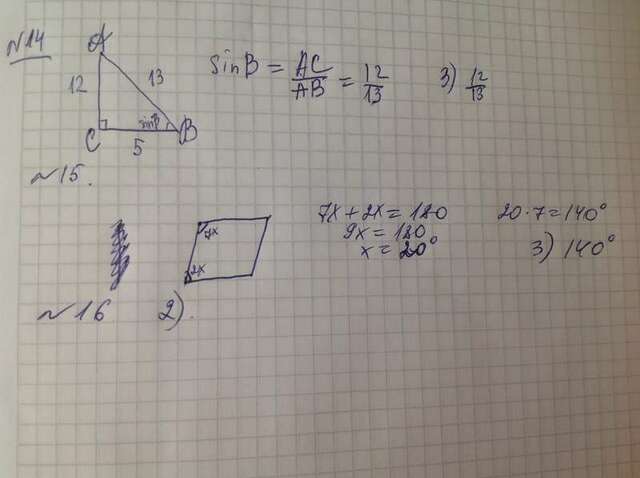 N14
A
12
13
C
5
sinB
B
sinB = AC/AB = 12/13
3) 12/13
N15.
7x
2x
7x + 2x = 180
9x = 180
x = 20°
20·7 = 140°
3) 140°
N16
2).